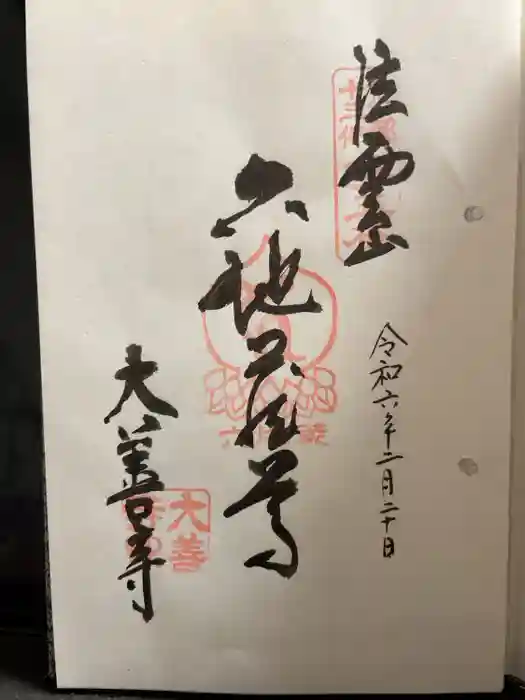 法雲山
令和六年二月二十日
六地蔵尊
六地蔵
大善寺
大善